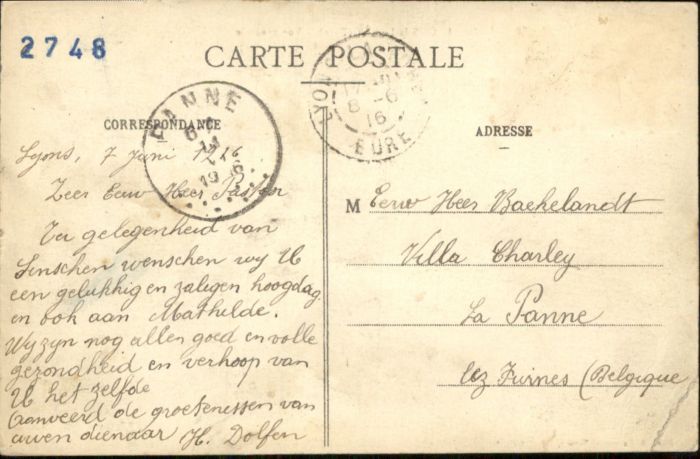 2748
CARTE POSTALE
CORRESPONDANCE
ADRESSE
PANNE
19
LYON
8-6
16
EURE
Lyons, 7 Juni 1916
Zeer Eerw Heer Pastoor
Ter gelegenheid van
Sinschen wenschen wy U
een gelukkig en zaligen hoogdag
en ook aan Mathilde.
Wy zyn nog allen goed en volle
gezondheid en verhoop van
U het zelfde
Aanveerd de groetenessen van
uwen dienaar H. Dolfen
M Eerw Heer Baekelandt
Villa Charley
La Panne
lez Furnes (Belgique